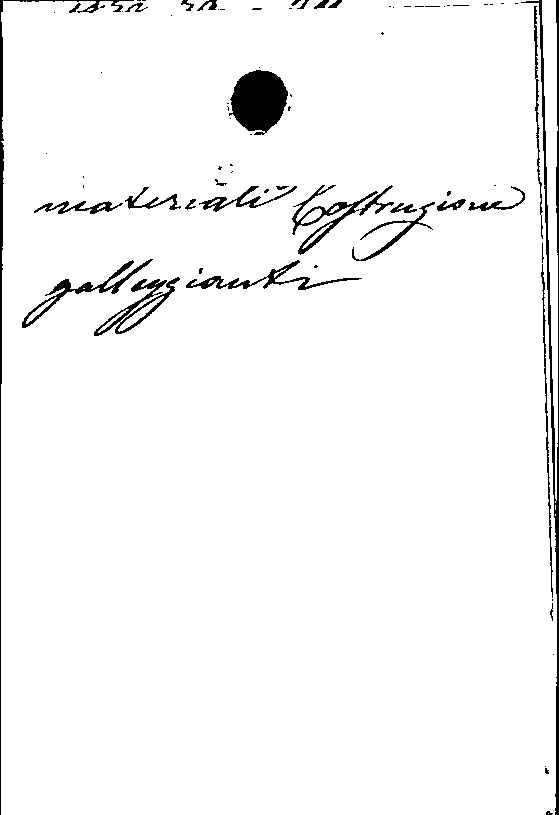 materiali Costruzione
galleggianti